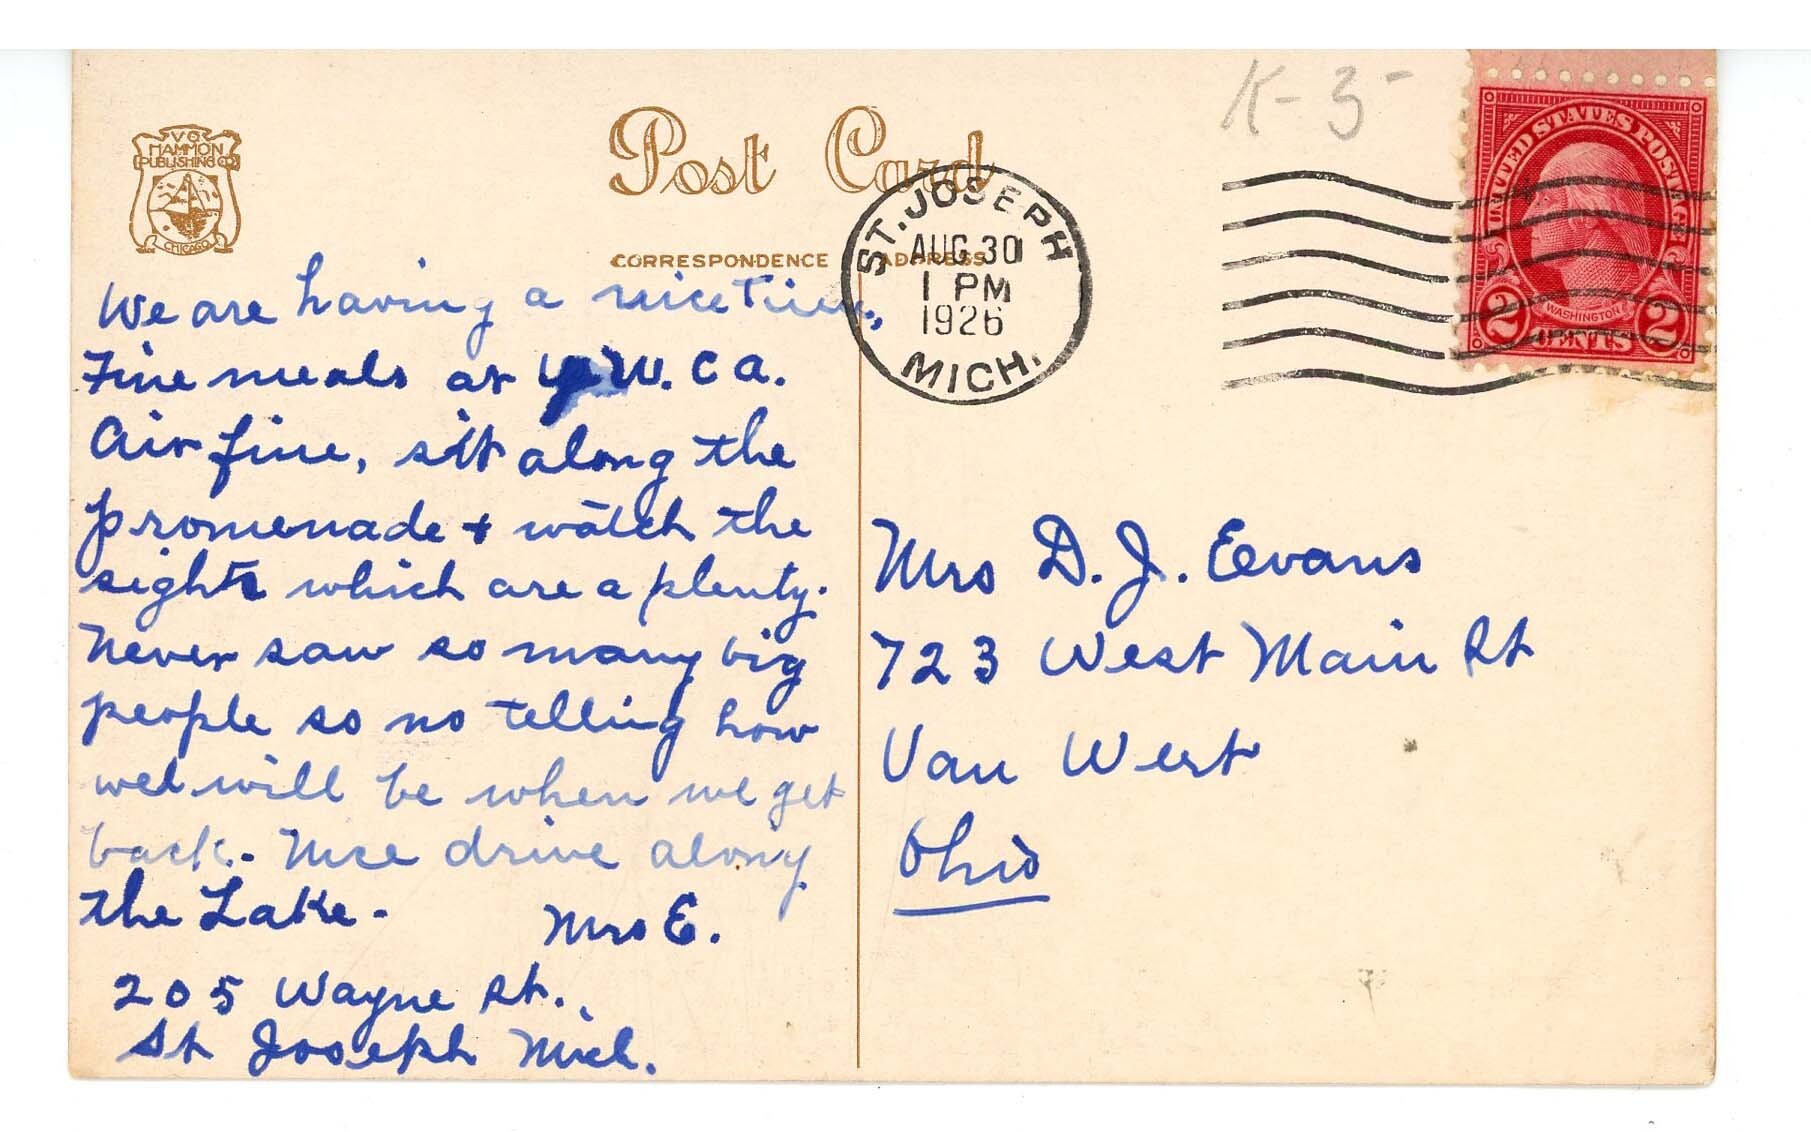 VO
HAMMON
PUBLISHING CO
CHICAGO
Post Card
CORRESPONDENCE
ADDRESS
K-3-
ST. JOSEPH
AUG 30
1 PM
1926
MICH.
UNITED STATES POSTAGE
WASHINGTON
2 CENTS 2
We are having a nice time,
Fine meals at Y.W.C.A.
Air fine, sit along the
promenade + watch the
sights which are a plenty.
Never saw so many big
people so no telling how
we will be when we get
back. Nice drive along
the Lake.
Mrs E.
205 Wayne St.
St Joseph Mich.
Mrs D. J. Evans
723 West Main St
Van Wert
Ohio